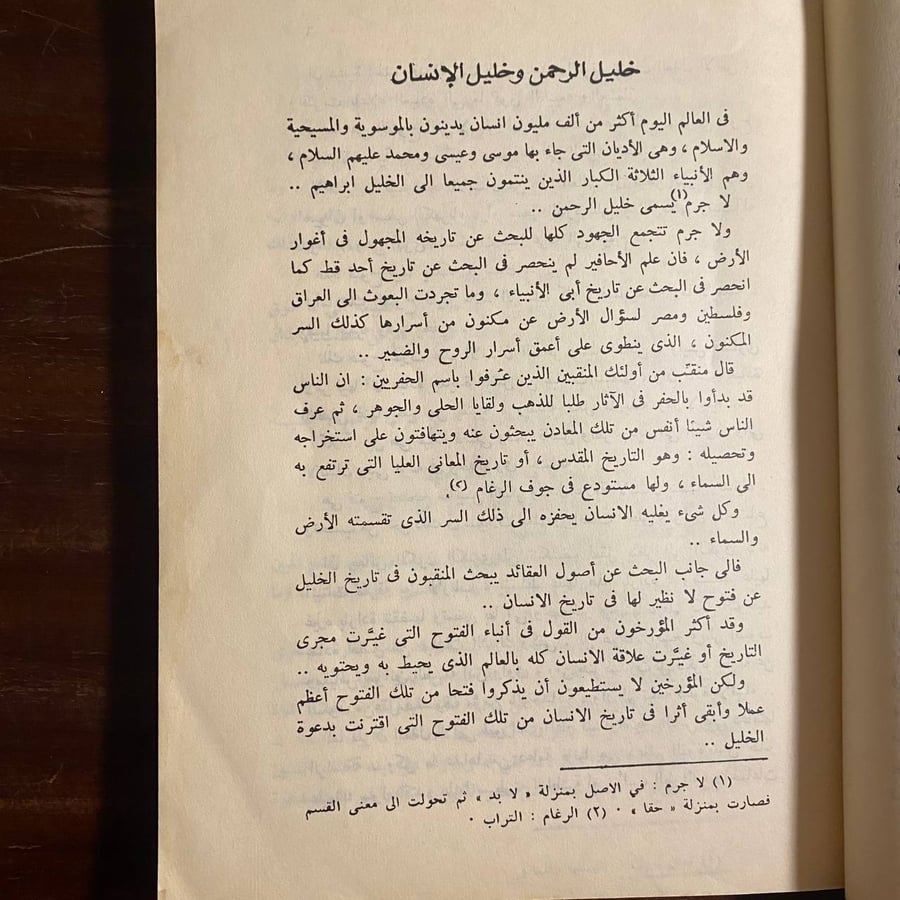 خليل الرحمن وخليل الإنسان
فى العالم اليوم أكثر من ألف مليون انسان يدينون بالموسوية والمسيحية
والاسلام ، وهى الأديان التى جاء بها موسى وعيسى ومحمد عليهم السلام ،
وهم الأنبياء الثلاثة الكبار الذين ينتمون جميعا الى الخليل ابراهيم ..
لا جرم(١) يسمى خليل الرحمن ..
ولا جرم تتجمع الجهود كلها للبحث عن تاريخه المجهول فى أغوار
الأرض ، فان علم الأحافير لم ينحصر فى البحث عن تاريخ أحد قط كما
انحصر فى البحث عن تاريخ أبى الأنبياء ، وما تجردت البعوث الى العراق
وفلسطين ومصر لسؤال الأرض عن مكنون من أسرارها كذلك السر
المكنون ، الذى ينطوى على أعمق أسرار الروح والضمير ..
قال منقّب من أولئك المنقبين الذين عُرفوا باسم الحفريين : ان الناس
قد بدأوا بالحفر فى الآثار طلبا للذهب ولقايا الحلى والجوهر ، ثم عرف
الناس شيئا أنفس من تلك المعادن يبحثون عنه ويتهافتون على استخراجه
وتحصيله : وهو التاريخ المقدس ، أو تاريخ المعانى العليا التى ترتفع به
الى السماء ، ولها مستودع فى جوف الرغام (٢).
وكل شىء يغليه الانسان يحفزه الى ذلك السر الذى تقسمته الأرض
والسماء ..
فالى جانب البحث عن أصول العقائد يبحث المنقبون فى تاريخ الخليل
عن فتوح لا نظير لها فى تاريخ الانسان ..
وقد أكثر المؤرخون من القول فى أنباء الفتوح التى غيَّرت مجرى
التاريخ أو غيَّرت علاقة الانسان كله بالعالم الذى يحيط به ويحتويه ..
ولكن المؤرخين لا يستطيعون أن يذكروا فتحا من تلك الفتوح أعظم
عملا وأبقى أثرا فى تاريخ الانسان من تلك الفتوح التى اقترنت بدعوة
الخليل ..
(١) لا جرم : في الاصل بمنزلة « لا بد » ثم تحولت الى معنى القسم
فصارت بمنزلة « حقا » ٠ (٢) الرغام : التراب ٠